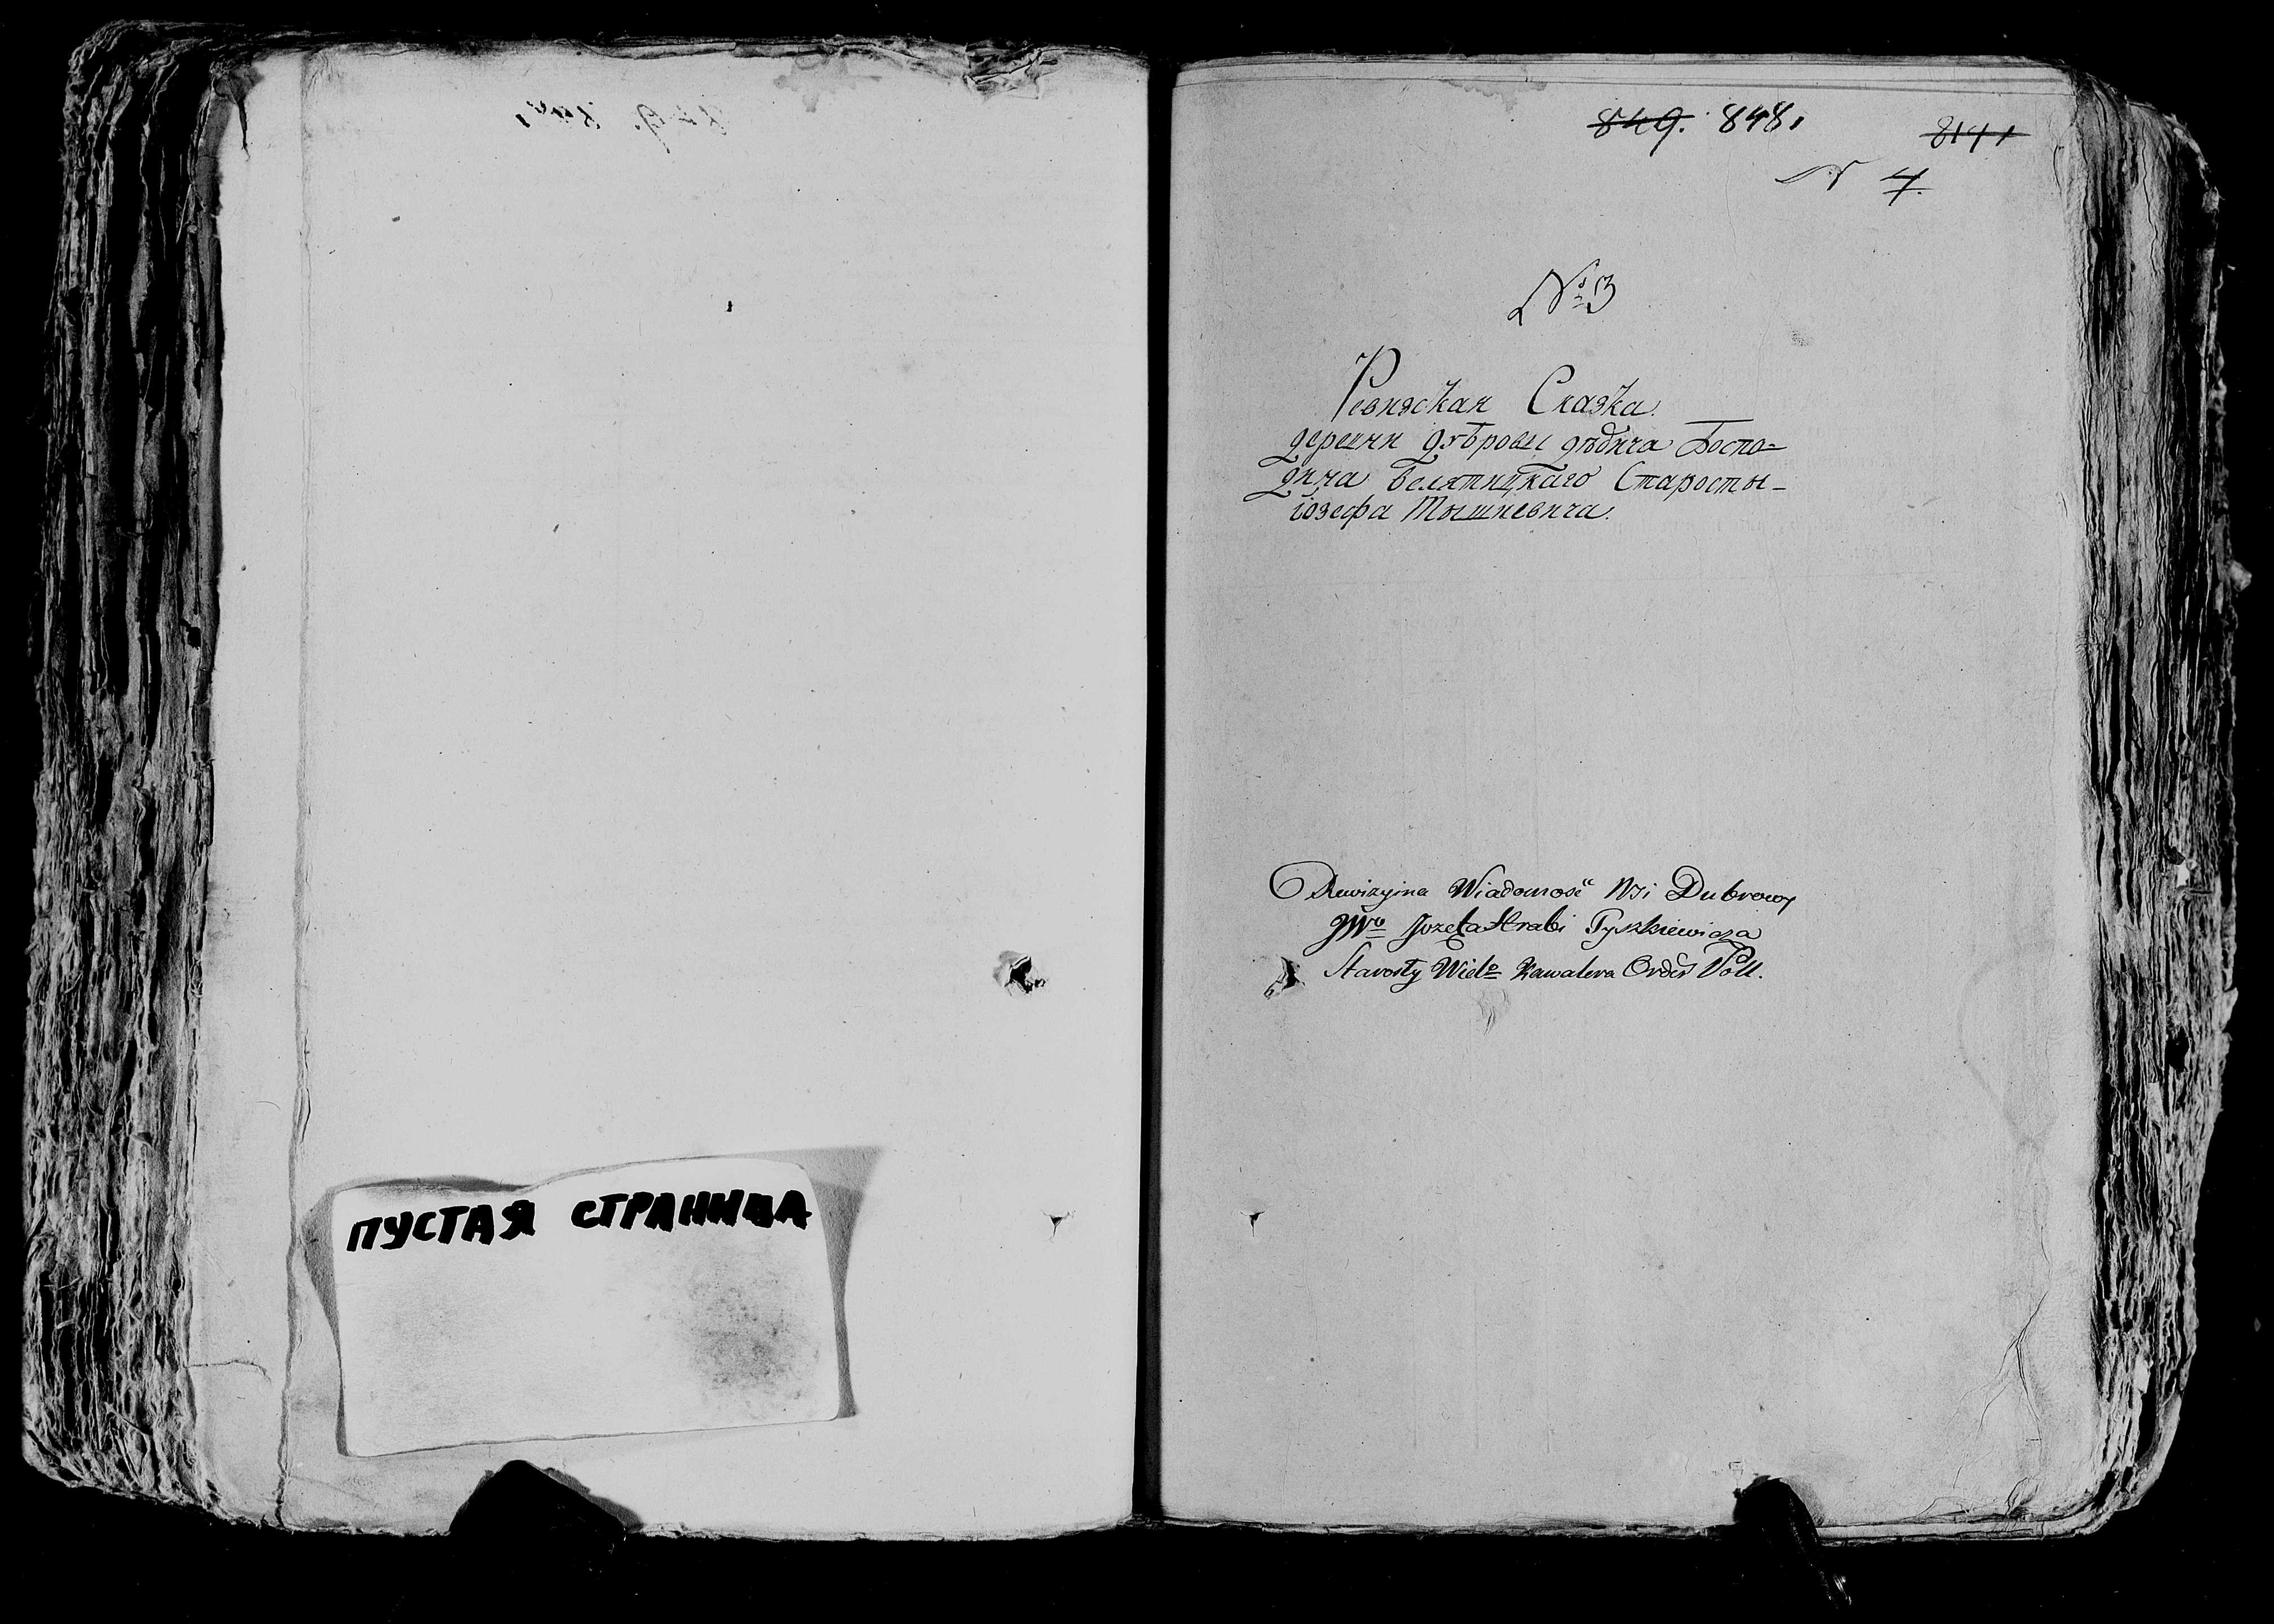 ПУСТАЯ СТРАНИЦА
849. 848,
814
N 4.
№ 3
Ревизская Сказка.
деревни дуброви дѣдича Госпо-
дина Велятицкаго Старосты
іозефа Тышкевича.
Rewizyina Wiadomość Wsi Dubrowy
JWo Jozefa Hrabi Tyszkiewicza
Starosty Wielo Kawalera Order Poll.